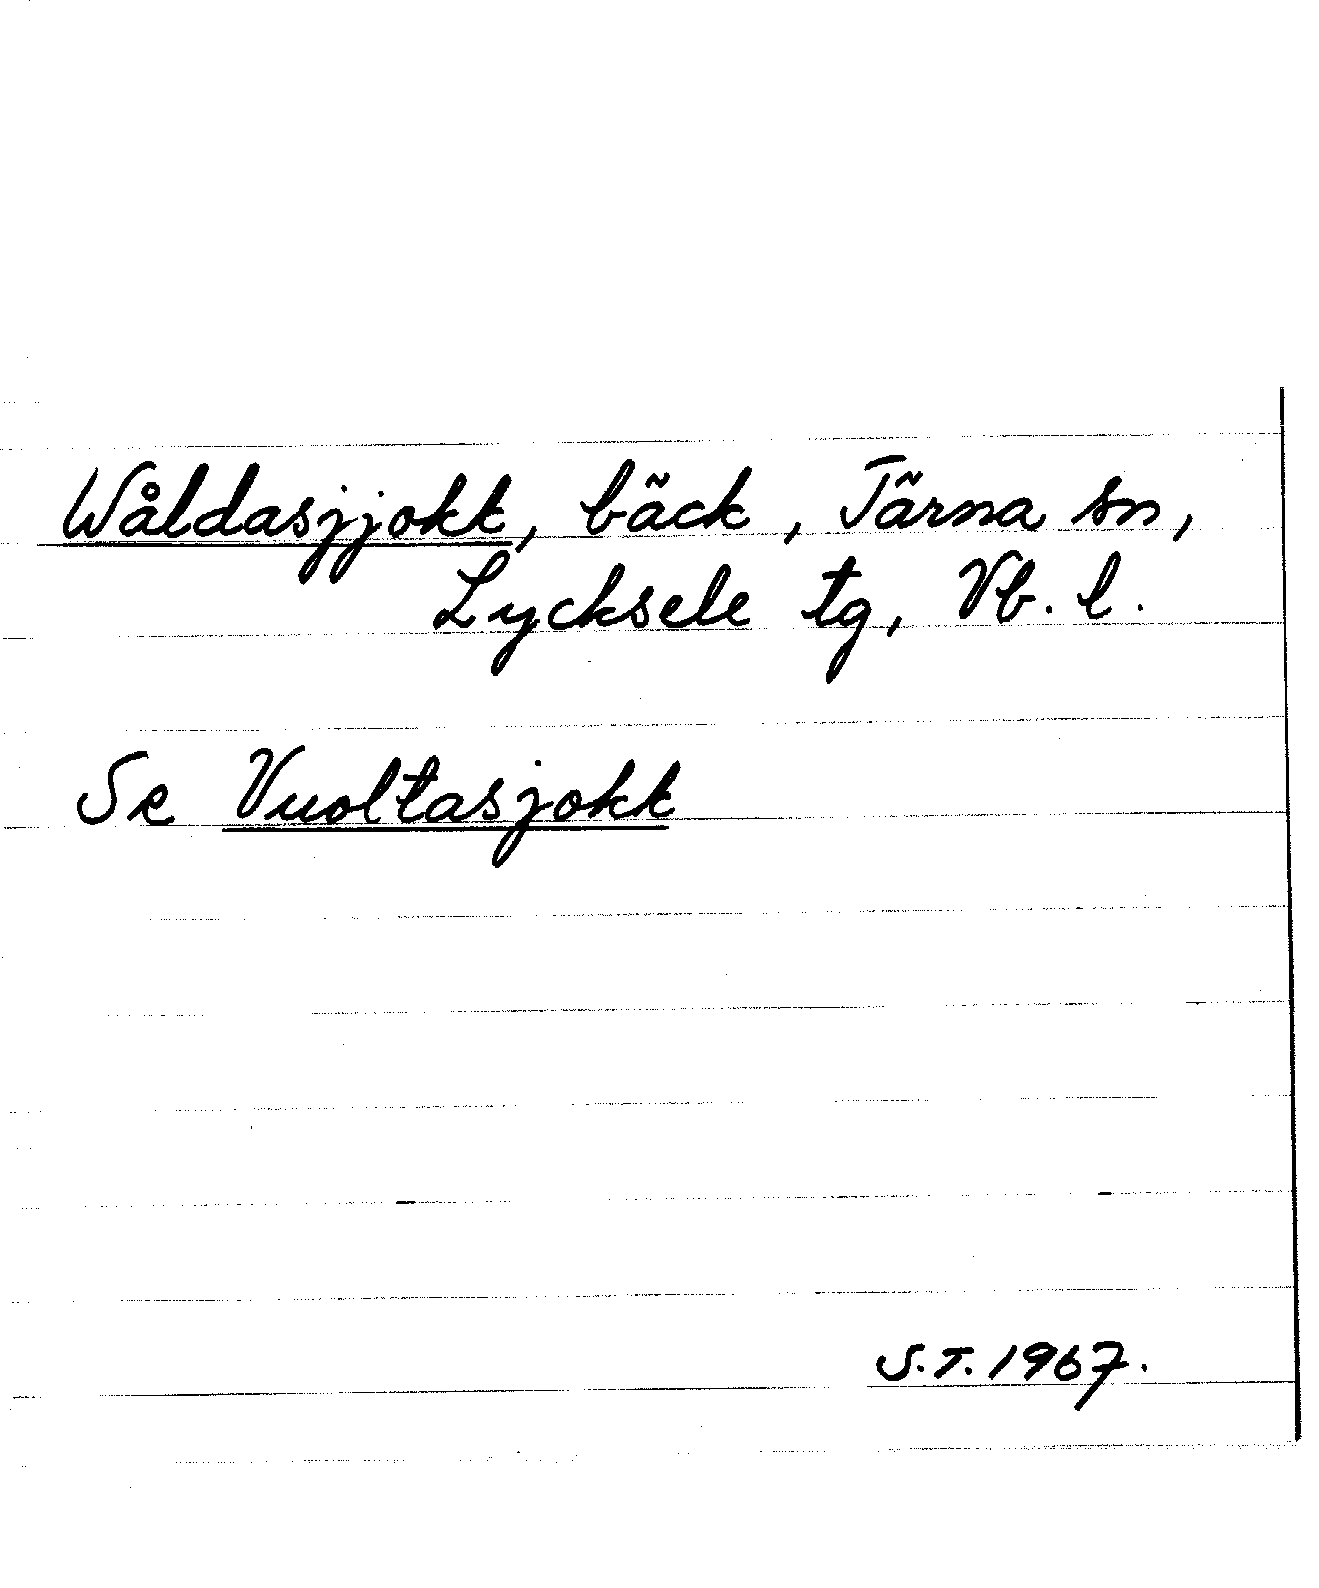 Wåldasjjokk, bäck, Tärna sn,
Lycksele tg, Vb. l.
Se Vuoltasjokk
S.T. 1967.